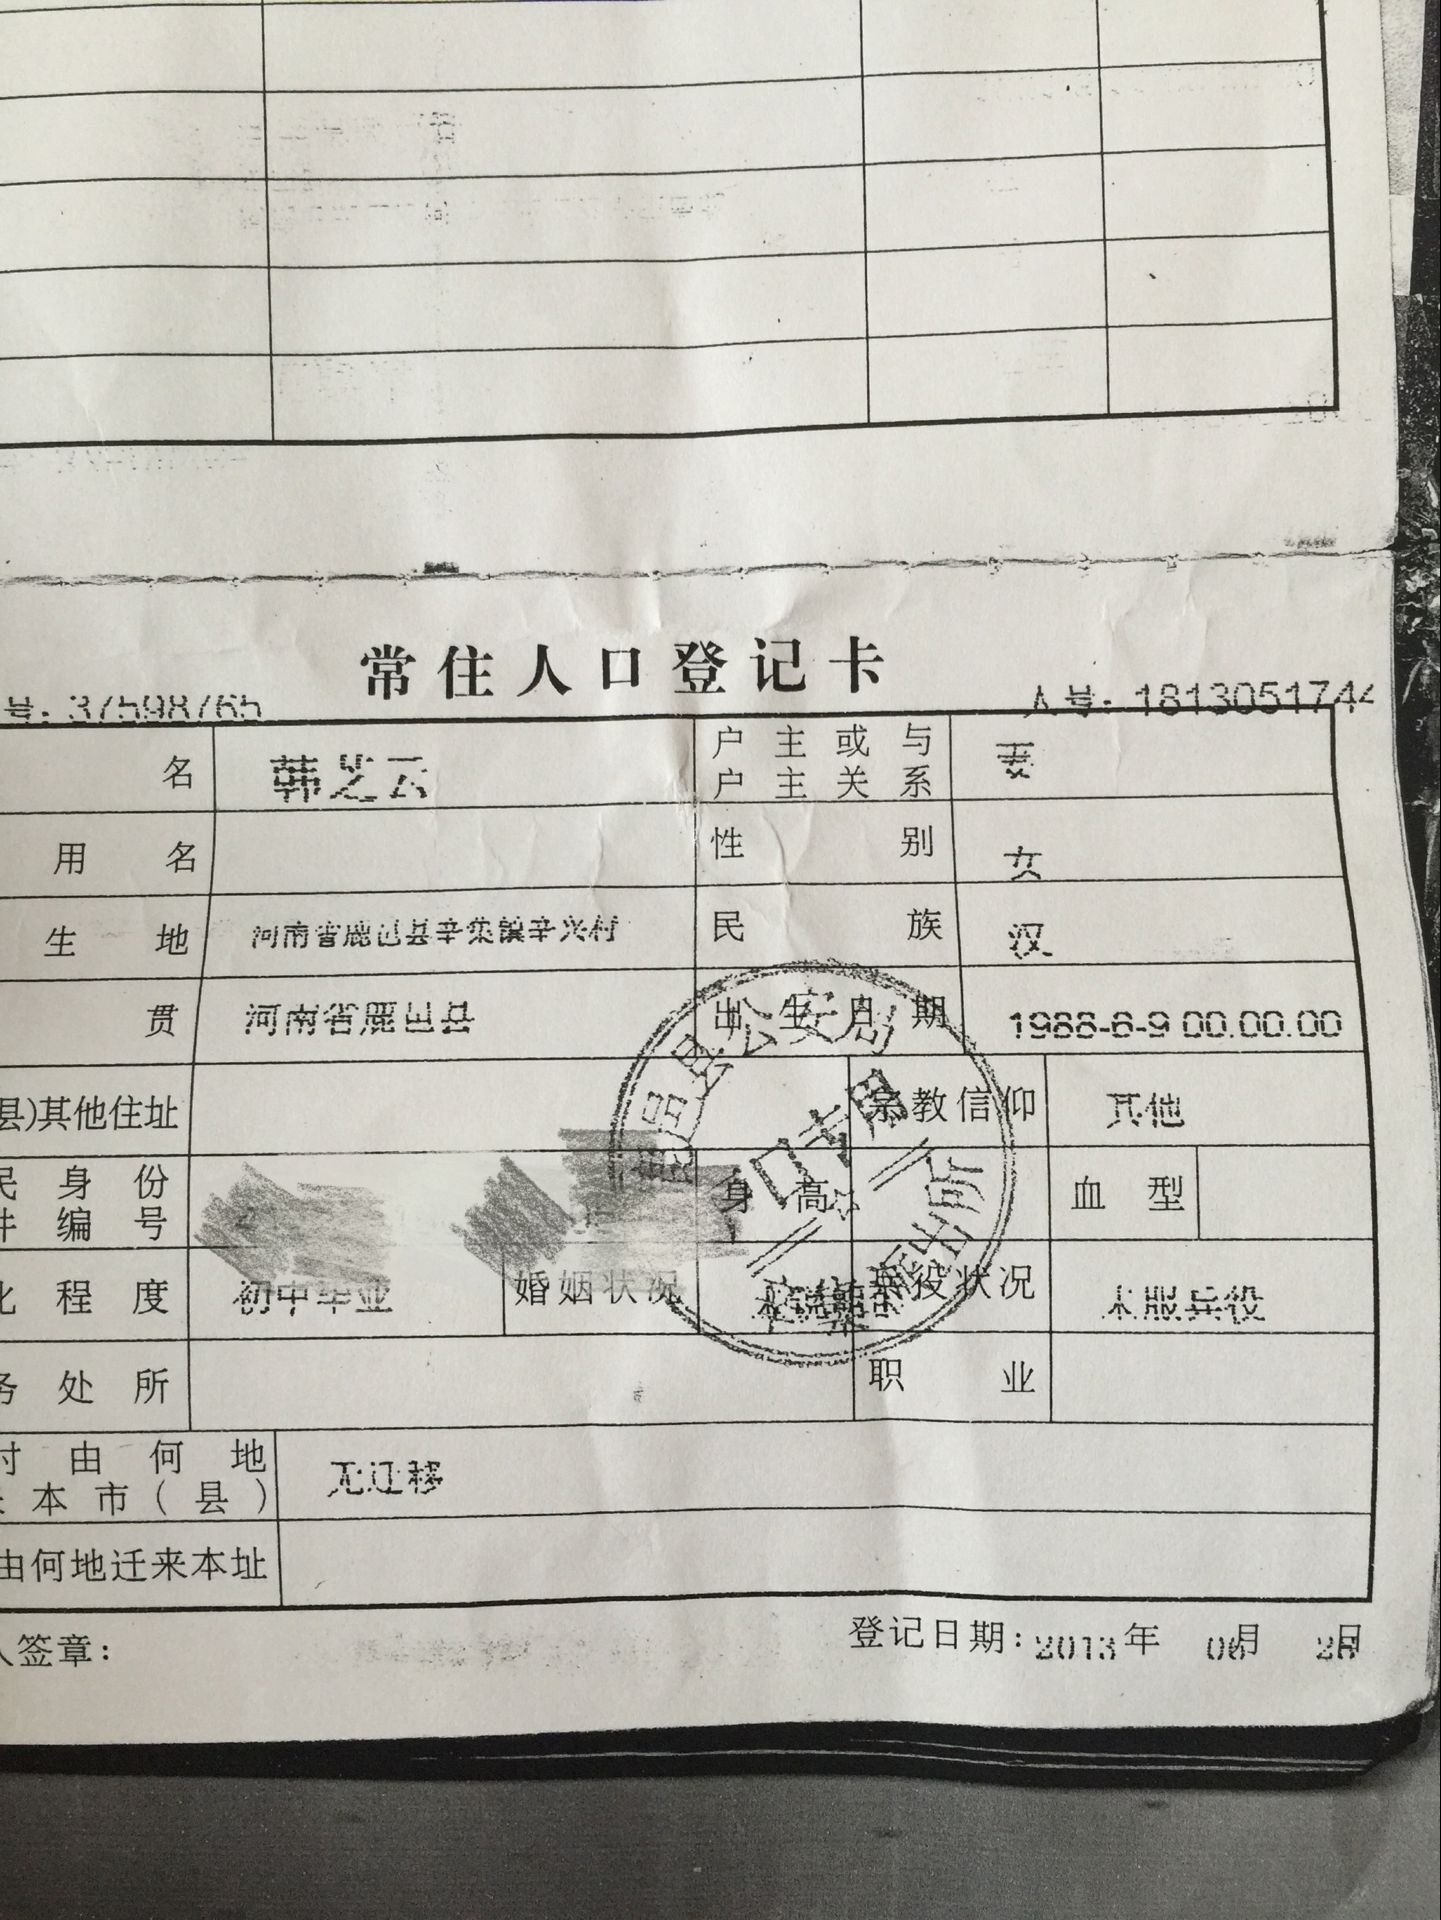 常住人口登记卡
号: 37598765 人号: 1813051744
名 韩芝云 户主或与户主关系 妻
用名 性别 女
生地 河南省鹿邑县辛集镇辛兴村 民族 汉
贯 河南省鹿邑县 出生日期 1988-6-9 00.00.00
县)其他住址 宗教信仰 其他
民身份件编号 身高 血型
化程度 初中毕业 婚姻状况 兵役状况 未服兵役
务处所 职业
时由何地来本市(县) 无迁移
由何地迁来本址
人签章: 登记日期: 2013年 06月 28日
县公安局
户口专用
派出所